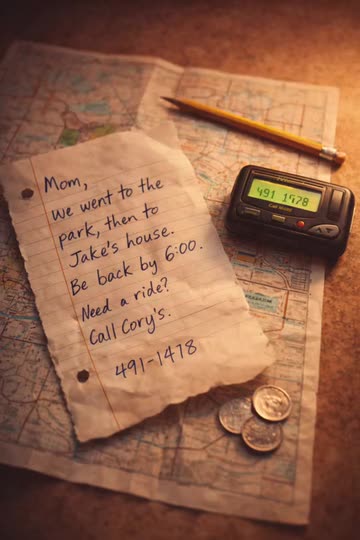 Mom,
we went to the
park, then to
Jake's house.
Be back by 6:00.
Need a ride?
Call Cory's.
491-1478
491 1978